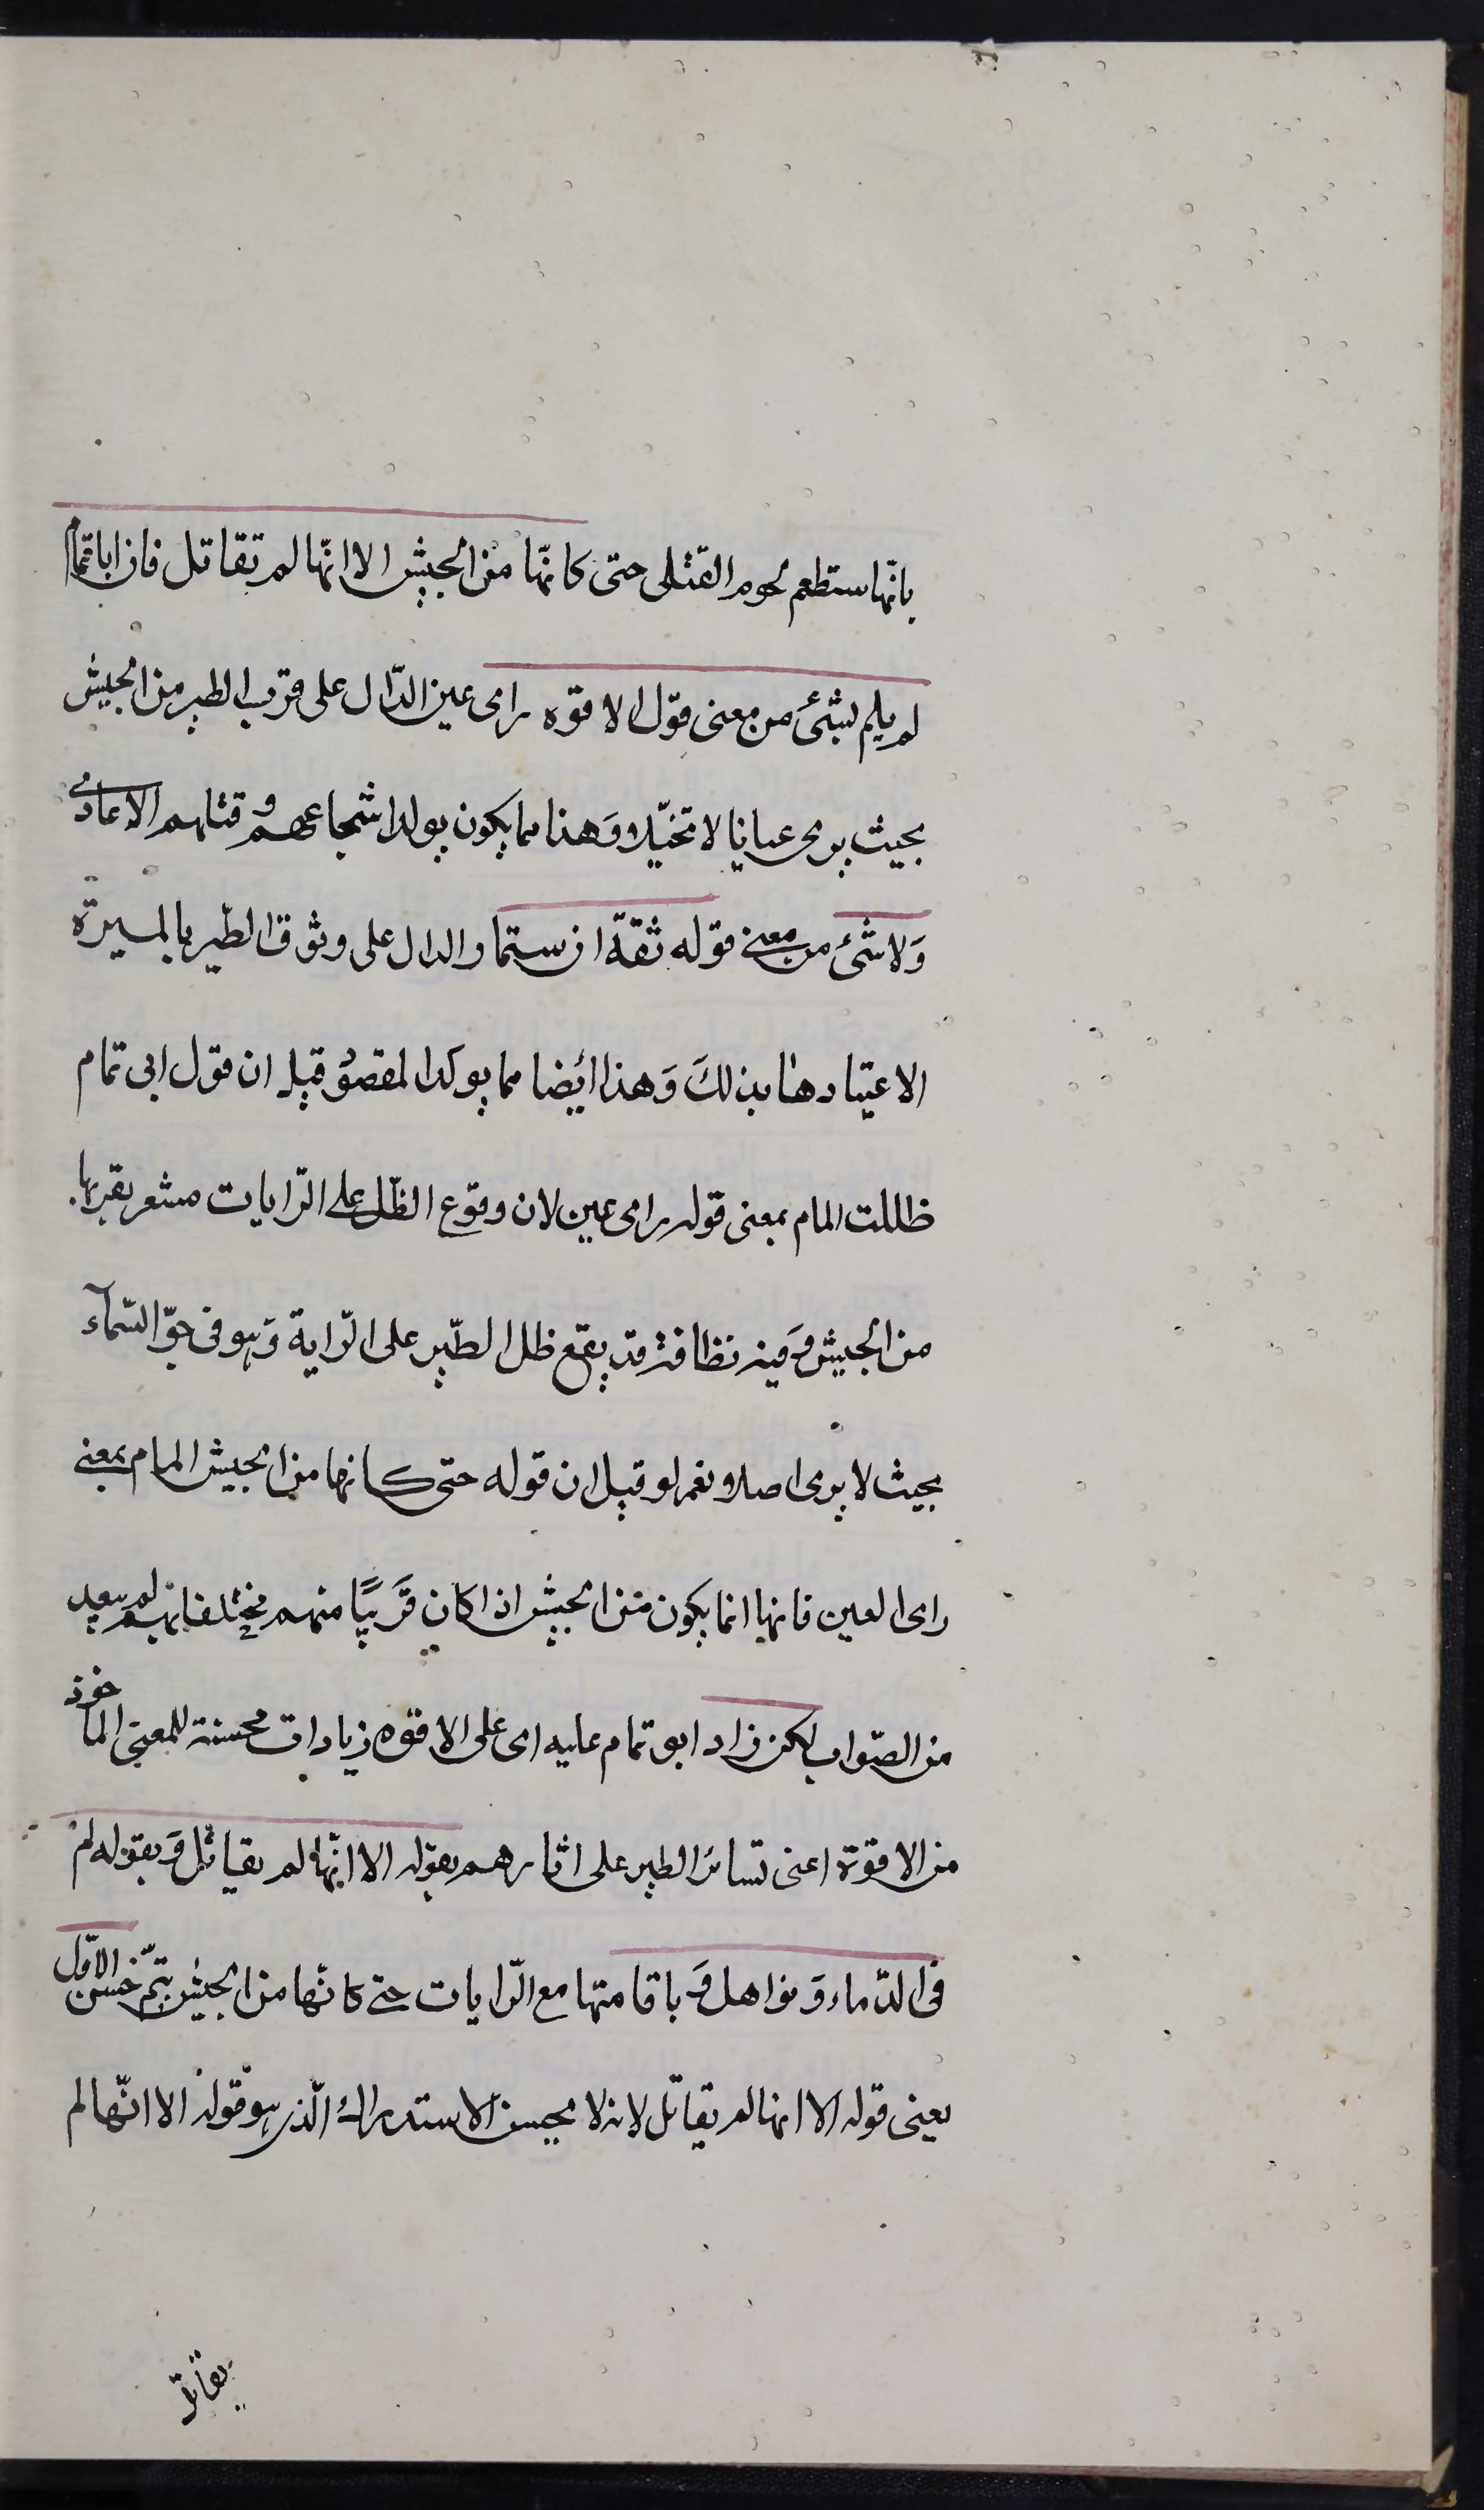 بانها ستطعم لحوم القتلى حتى كانّها من الجيش الا انّها لم تقاتل فان ابا تمام
لم يلم بشئ من معنى قول الافوه رأى عين الدّال على قرب الطير من الجيش
بحيث يرى عيانا لا تخيّلا وَهذا مما يكون يولد شجاعتهم و قتلهم الاعادى
وَلا شئ من معنى قوله ثقة ان ستمار الدال على وثوق الطير بالميرة
الاعتيادها بذلك وَهذا ايضا مما يوكد المقصود قيل ان قول ابى تمام
ظللت المام بمعنى قوله راى عين لان وقوع الظّل على الرّايات مشعر بقربها
من الجيش وَفيه نظر فانه قد يقع ظل الطّير على الرّاية وَهو فى جوّ السّمآء
بحيث لا يرى اصلا و نعم لو قيل ان قوله حتى كانها من الجيش المام بمعنى
راى العين فانها انما يكون من الجيش اذا كان قَريبًا منهم مختلطا بهم لم يبعد
من الصّواب لكن زاد ابو تمام عليه اى على الافوه زيادات محسنة للمعنى الماخوذ
من الافوه اعنى تساير الطير على اثارهم بقوله الا انّها لم يقاتل وَبقوله
فى الدّماء وَنواهل وَ باقامتها مع الرّايات حتى كانّها من الجيش يتمّ حسن الاوّل
يعنى قوله الا انها لم يقاتل لانه لا يحسن الاستدراك الّذى هو قوله الا انّها لم
يقاتل